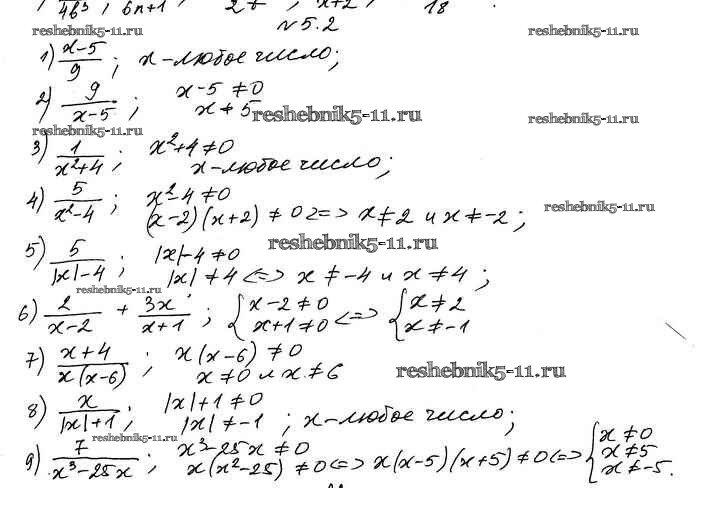 4b³ ; 6n+1 ; 2t ; x+2 ; 18
№5.2
reshebnik5-11.ru reshebnik5-11.ru
1) x-5/9 ; x-любое число;
2) 9/x-5 ; x-5≠0
x≠5
reshebnik5-11.ru reshebnik5-11.ru reshebnik5-11.ru
3) 1/x²+4 ; x²+4≠0
x-любое число;
4) 5/x²-4 ; x²-4≠0
(x-2)(x+2)≠0 <=> x≠2 и x≠-2;
reshebnik5-11.ru
reshebnik5-11.ru
5) 5/|x|-4 ; |x|-4≠0
|x|≠4 <=> x≠-4 и x≠4;
reshebnik5-11.ru
6) 2/x-2 + 3x/x+1 ; { x-2≠0 <=> { x≠2
x+1≠0 x≠-1
7) x+4/x(x-6) ; x(x-6)≠0
x≠0 и x≠6
reshebnik5-11.ru
8) x/|x|+1 ; |x|+1≠0
|x|≠-1 ; x-любое число;
reshebnik5-11.ru
9) 7/x³-25x ; x³-25x≠0
x(x²-25)≠0 <=> x(x-5)(x+5)≠0 <=> { x≠0
x≠5
x≠-5.